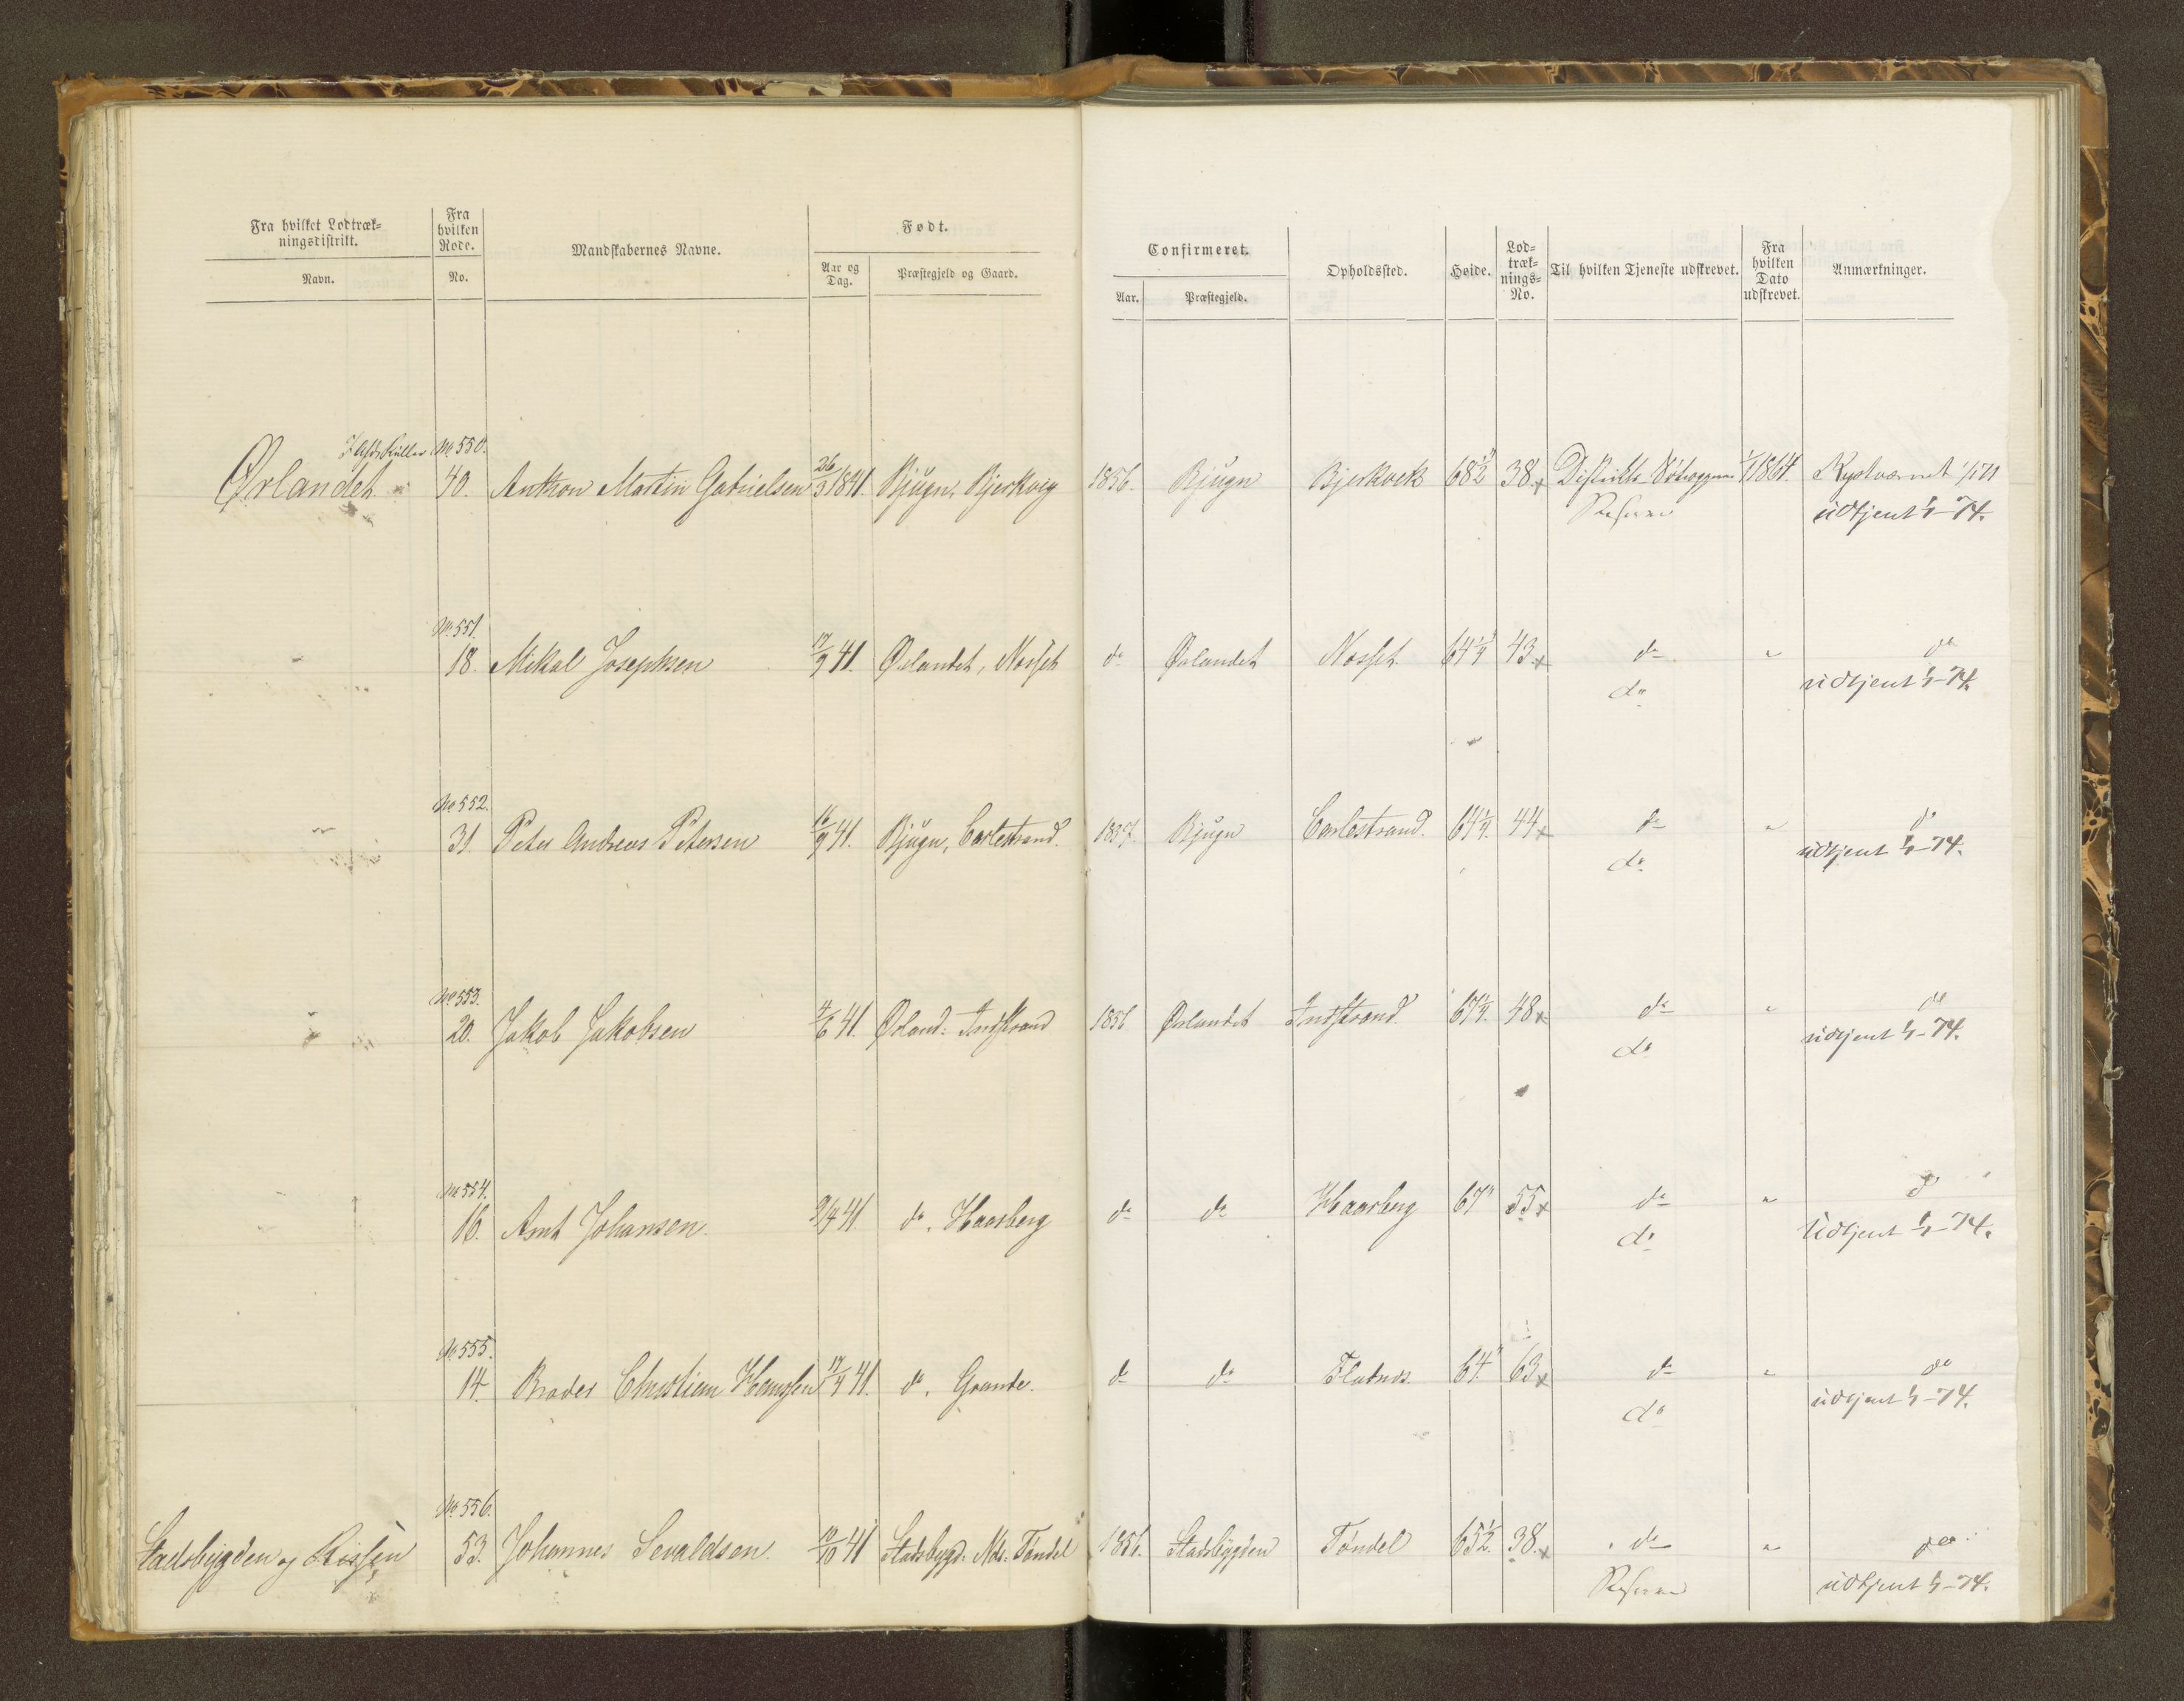 Fra hvilket Lodtræk-
ningsdistrikt.
Navn.
Fra
hvilken
Rode.
No.
Mandskabernes Navne.
Født.
Aar og
Dag.
Præstegjeld og Gaard.
Confirmeret.
Aar.
Præstegjeld.
Opholdssted.
Høide.
Lod-
træk-
nings-
No.
Til hvilken Tjeneste udskrevet.
Fra
hvilken
Dato
udskrevet.
Anmærkninger.
No 550.
Ørlandet 40. Anthon Martin Gabrielsen 26/3 1841. Bjugn, Bjerkvig 1856. Bjugn Bjerkvek 68 1/2 38. Distrikts 1/1 1864. Kystværnet 1/1 71
Reserve udtjent 1/1-74.
No. 551.
18. Mikal Josephsen 17/9 41. Ørlandet, Nosset do Ørlandet Nosset 64 1/4 43. do " do
do udtjent 1/1-74.
No 552.
31. Peter Andreas Petersen 16/9 41. Bjugn, Carlestrand. 1857. Bjugn Carlestrand. 64 1/4. 44. do " do
do udtjent 1/1-74.
No 553.
20. Jakob Jakobsen 4/6 41. Ørland: Indstrand 1856 Ørlandet Indstrand. 67 1/4. 48. do " do
do udtjent 1/1-74.
No 554.
16. Arnt Johansen. 9/4 41. do. Haarberg do do Haarberg 67" 55. do " do
do Udtjent 1/1-74.
No 555.
14. Christian 17/4 41. do. Grande. do do Flatnes. 64" 63. do " do
do udtjent 1/1-74.
No 556.
Stadsbygden og Rissen 53. Johannes Sevaldsen. 10/10 41 Stadsbygd: Ndr: Tøndel 1856. Stadsbygden Tøndel 65 1/2. 38. do " do
Reserve udtjent 1/1-74.